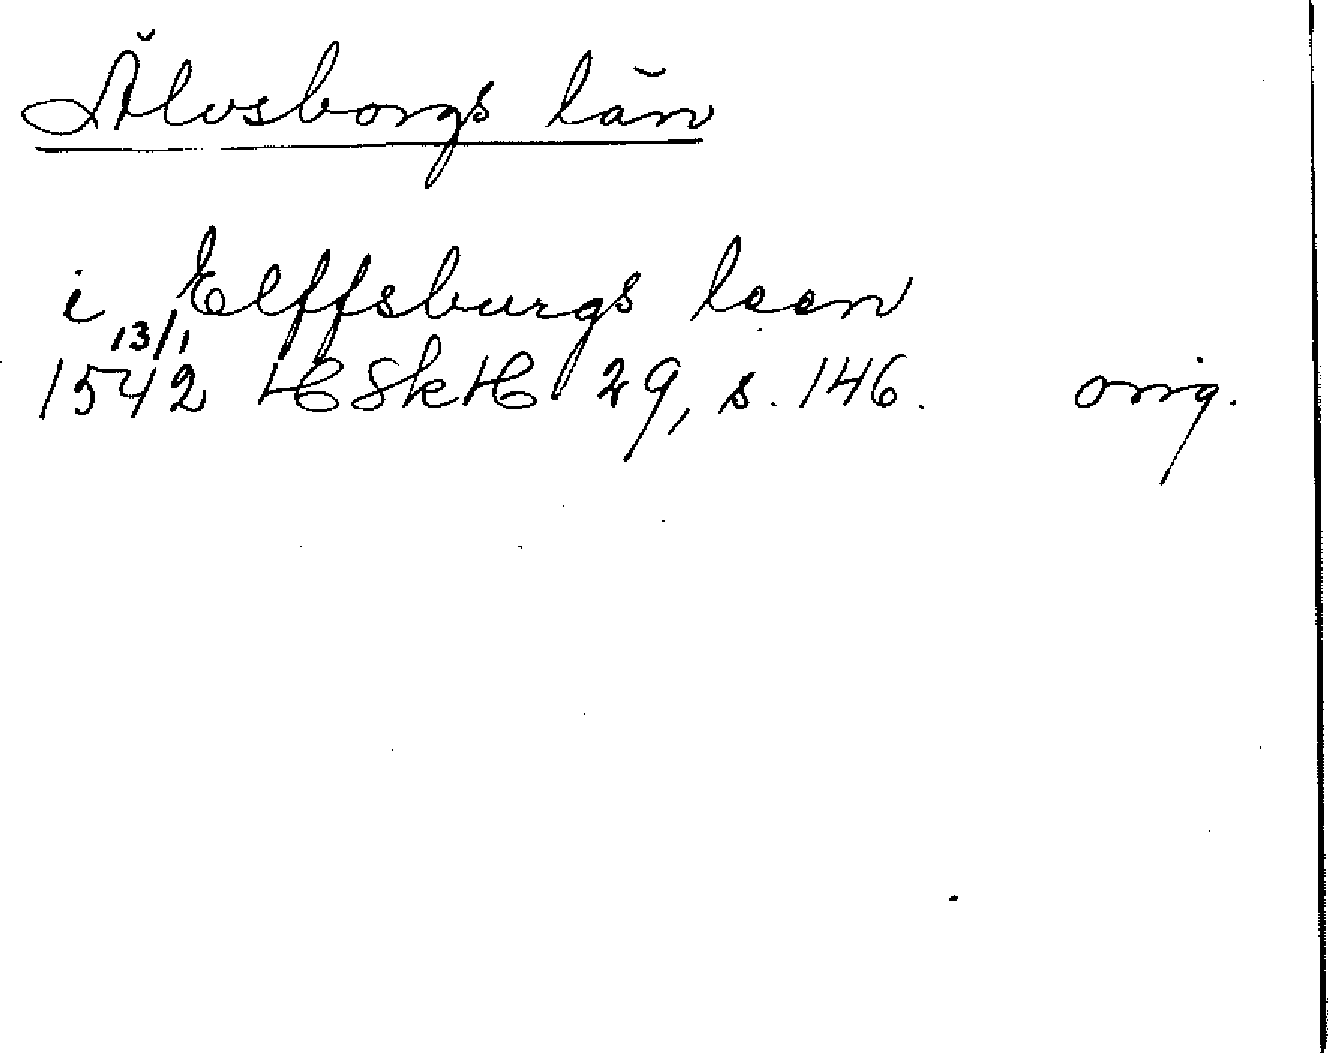 Älvsborgs län
i Elffsburgs leen
13/1
1542 HSkH 29, s. 146. orig.